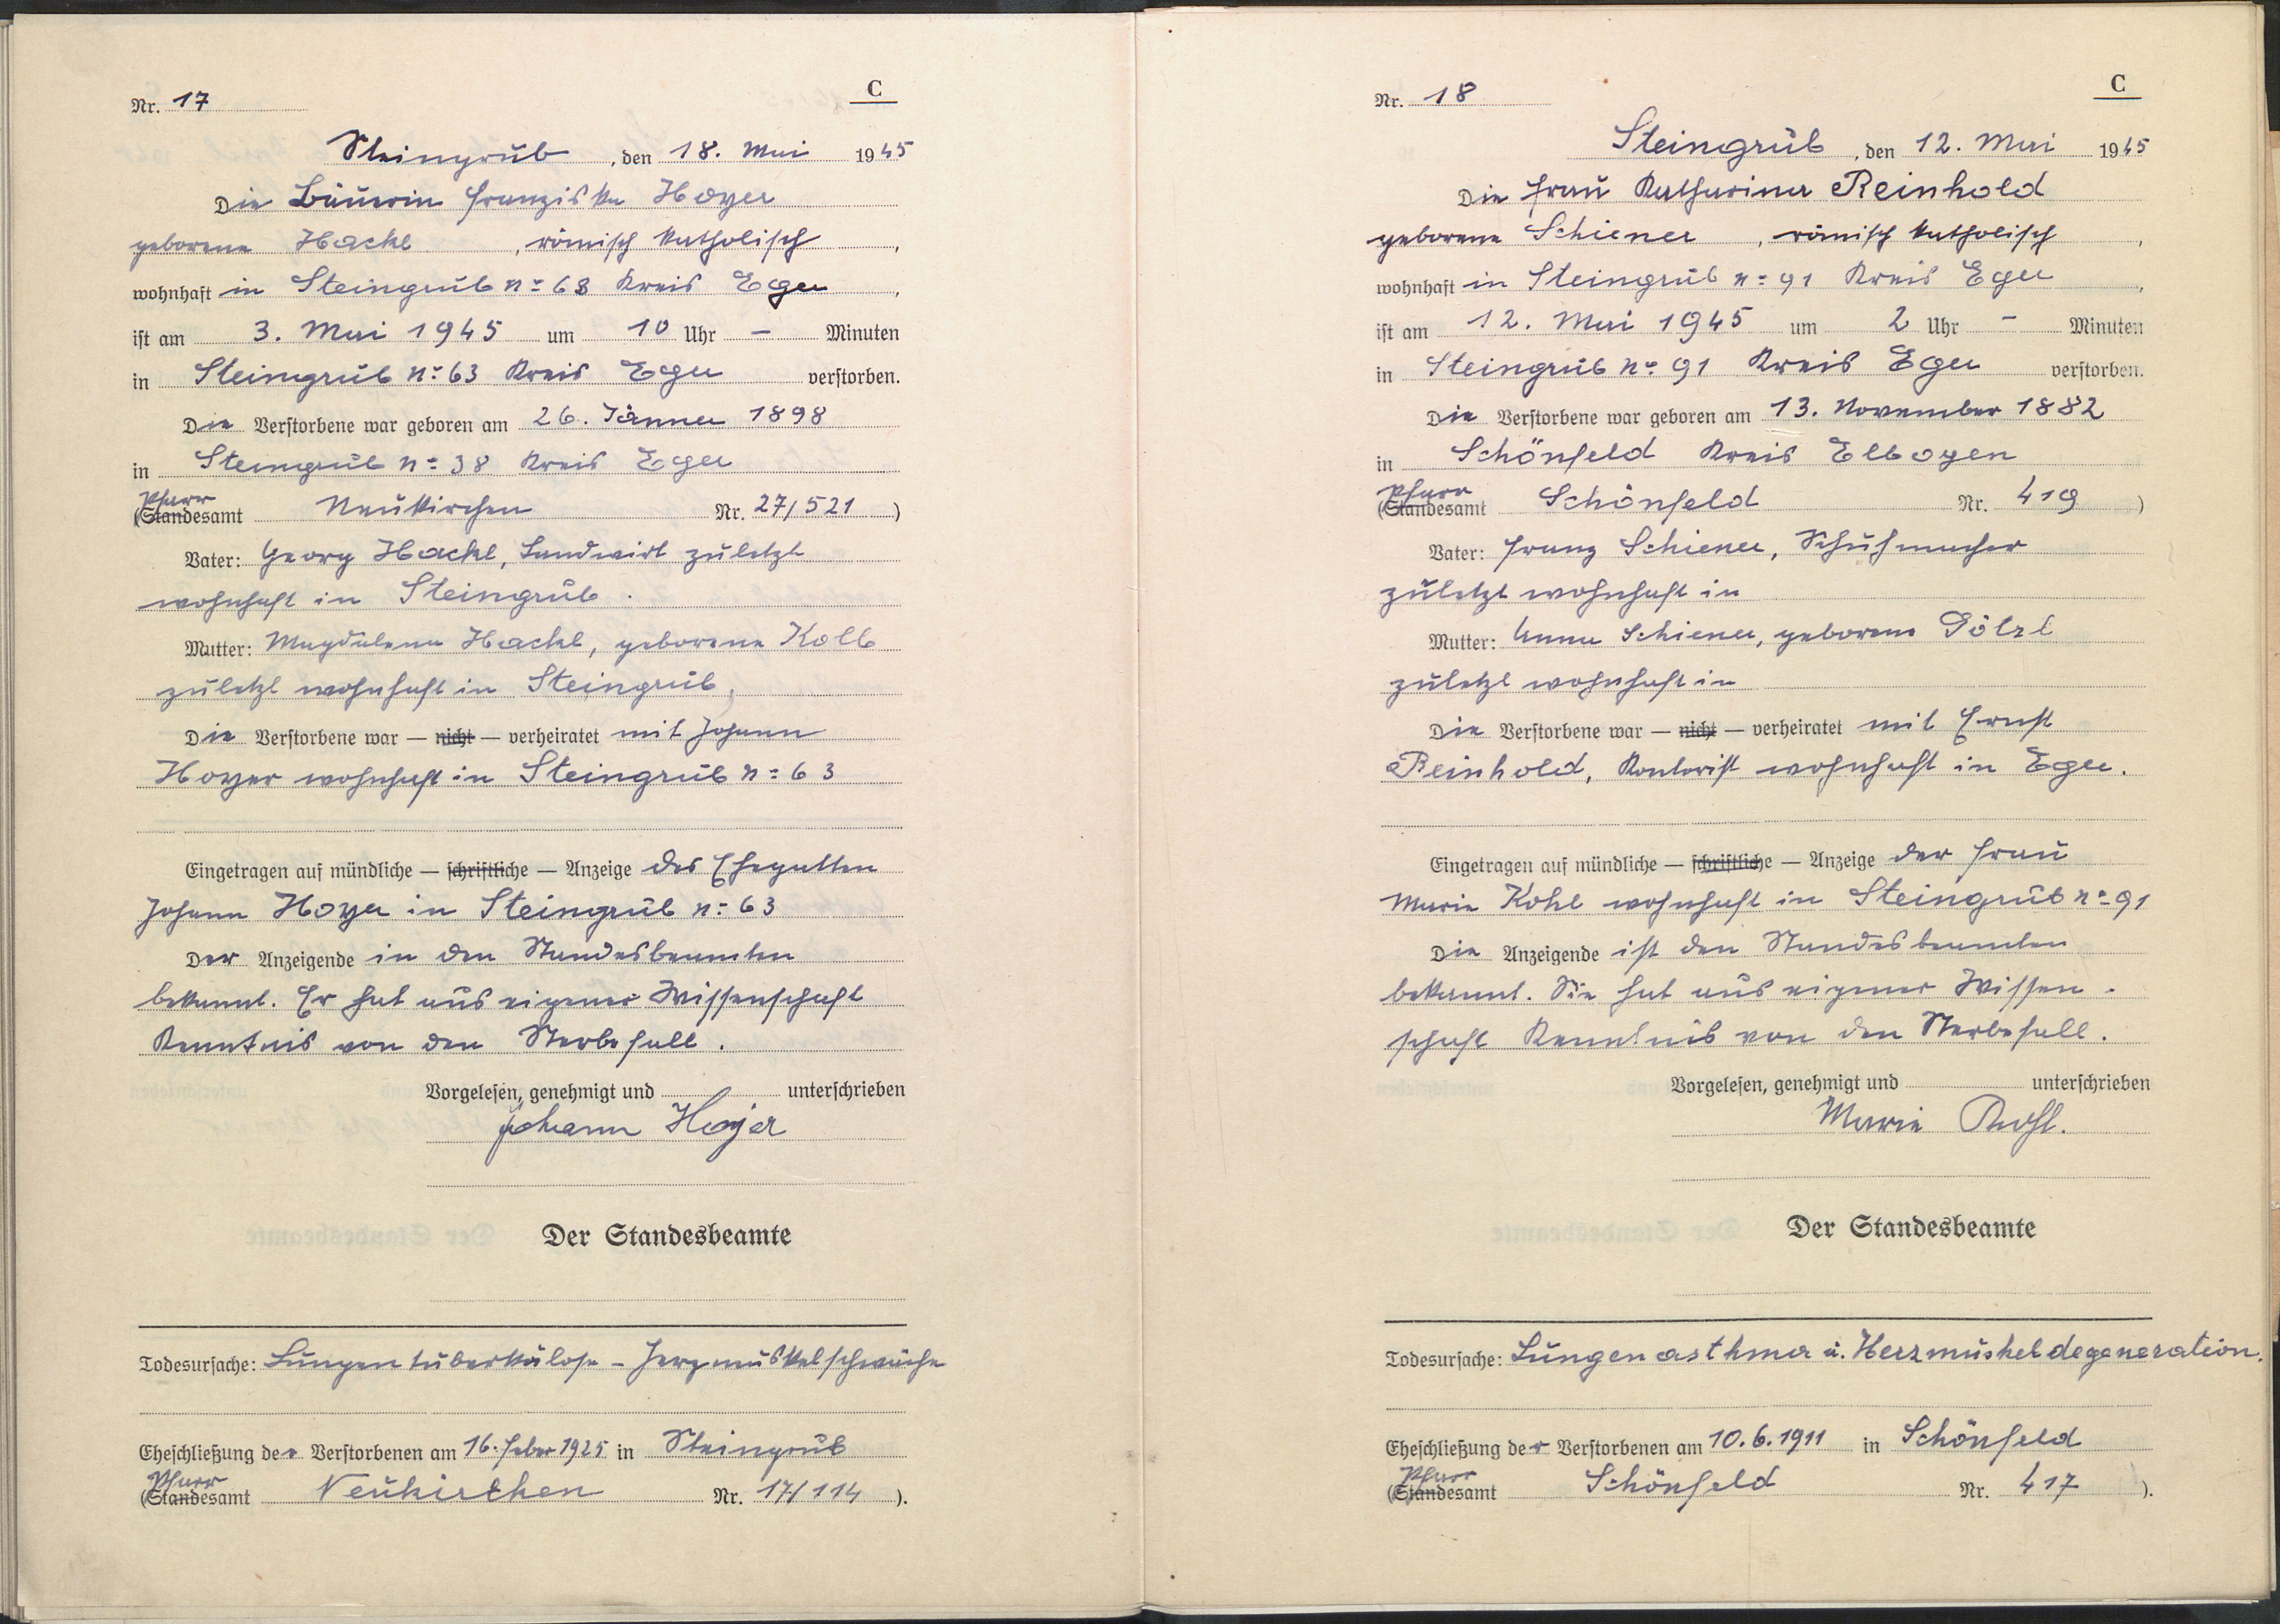 Nr. 17
C
Steingrub, den 18. Mai 1945
Die Bäuerin Franziska Hoyer
geborene Hackl, römisch katholisch,
wohnhaft in Steingrub n= 63 Kreis Eger,
ist am 3. Mai 1945 um 10 Uhr – Minuten
in Steingrub n= 63 Kreis Eger verstorben.
Die Verstorbene war geboren am 26. Jänner 1898
in Steingrub n= 38 Kreis Eger
Pfarr
(Standesamt Neukirchen Nr. 27/521)
Vater: Georg Hackl, Landwirt zuletzt
wohnhaft in Steingrub.
Mutter: Magdalena Hackl, geborene Kolb
zuletzt wohnhaft in Steingrub,
Die Verstorbene war — nicht — verheiratet mit Johann
Hoyer wohnhaft in Steingrub n= 63
Eingetragen auf mündliche — schriftliche — Anzeige des Ehegatten
Johann Hoyer in Steingrub n= 63
Der Anzeigende in den Standesbeamten
bekannt. Er hat aus eigener Wissenschaft
Kenntnis von den Sterbefall.
Vorgelesen, genehmigt und unterschrieben
Johann Hoyer
Der Standesbeamte
Todesursache: Lungentuberkulose – Herzmuskelschwäche
Eheschließung der Verstorbenen am 16. Feber 1925 in Steingrub
Pfarr
(Standesamt Neukirchen Nr. 17/114).
Nr. 18
C
Steingrub, den 12. Mai 1945
Die Frau Katharina Reinhold
geborene Schiener, römisch katholisch,
wohnhaft in Steingrub n= 91 Kreis Eger,
ist am 12. Mai 1945 um 2 Uhr – Minuten
in Steingrub n= 91 Kreis Eger verstorben.
Die Verstorbene war geboren am 13. November 1882
in Schönfeld Kreis Elbogen
Pfarr
(Standesamt Schönfeld Nr. 419)
Vater: Franz Schiener, Schuhmacher
zuletzt wohnhaft in
Mutter: Anna Schiener, geborene Götzl
zuletzt wohnhaft in
Die Verstorbene war — nicht — verheiratet mit Ernst
Reinhold, Kontorist wohnhaft in Eger.
Eingetragen auf mündliche — schriftliche — Anzeige der Frau
Marie Kohl wohnhaft in Steingrub n= 91
Die Anzeigende ist den Standesbeamten
bekannt. Sie hat aus eigener Wissen-
schaft Kenntnis von den Sterbefall.
Vorgelesen, genehmigt und unterschrieben
Marie Kohl.
Der Standesbeamte
Todesursache: Lungenasthma u. Herzmuskeldegeneration.
Eheschließung der Verstorbenen am 10.6.1911 in Schönfeld
Pfarr
(Standesamt Schönfeld Nr. 417).